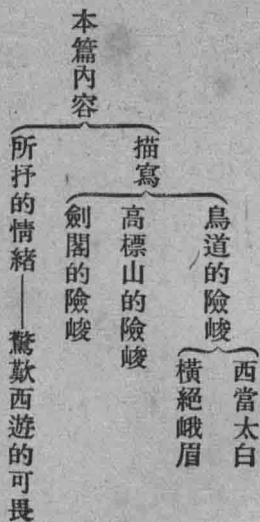 本篇內容
描寫
鳥道的險峻
西當太白
橫絕峨眉
高標山的險峻
劍閣的險峻
所抒的情緒——驚歎西遊的可畏